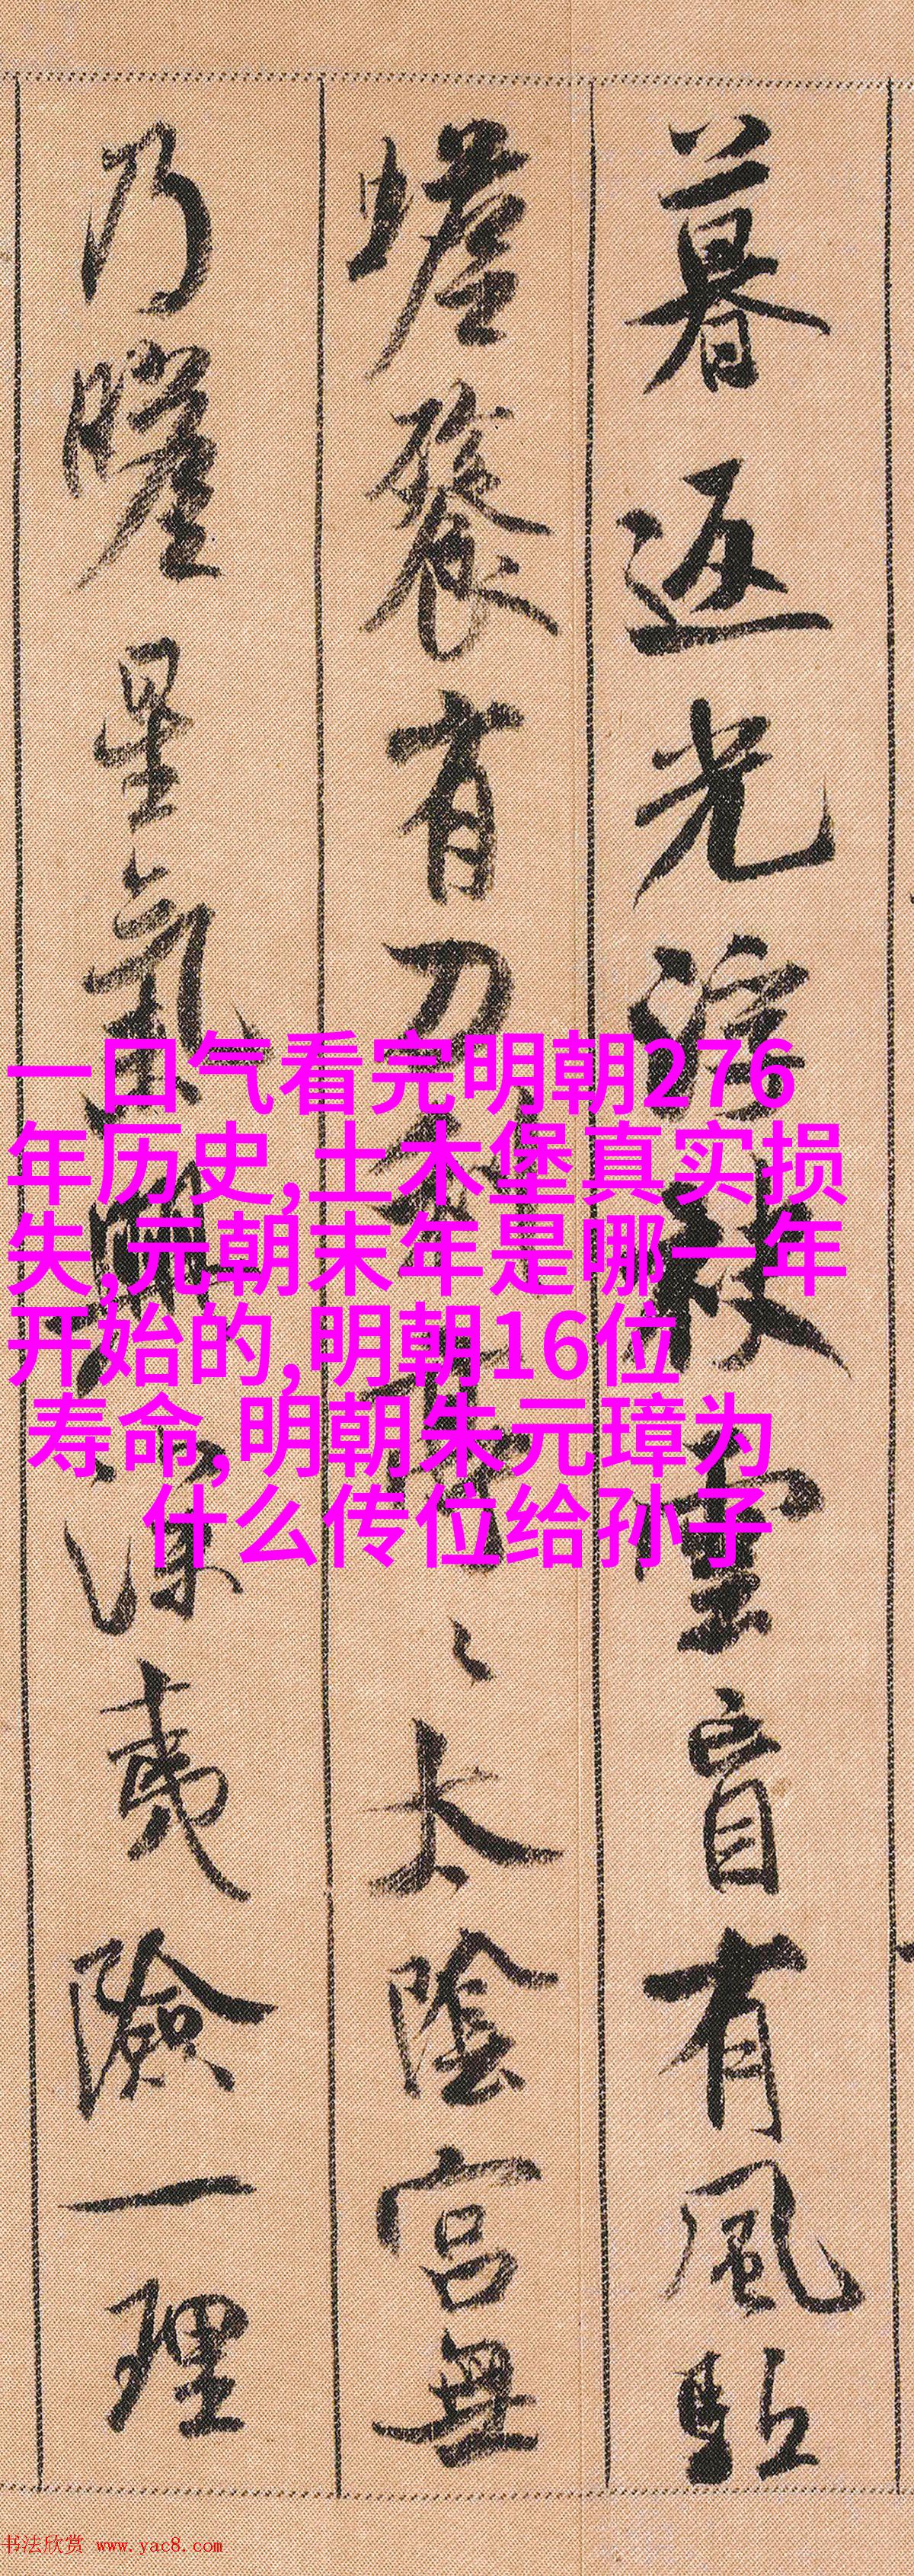 暮返光浮 靈盲有風點
嵯餮有刀 太陰宮無
乃 星氣 深夷險一理
一口气看完明朝276
年历史,土木堡真实损
失,元朝末年是哪一年
开始的,明朝16位
寿命,明朝朱元璋为
什么传位给孙子
书法欣赏 www.yac8.com